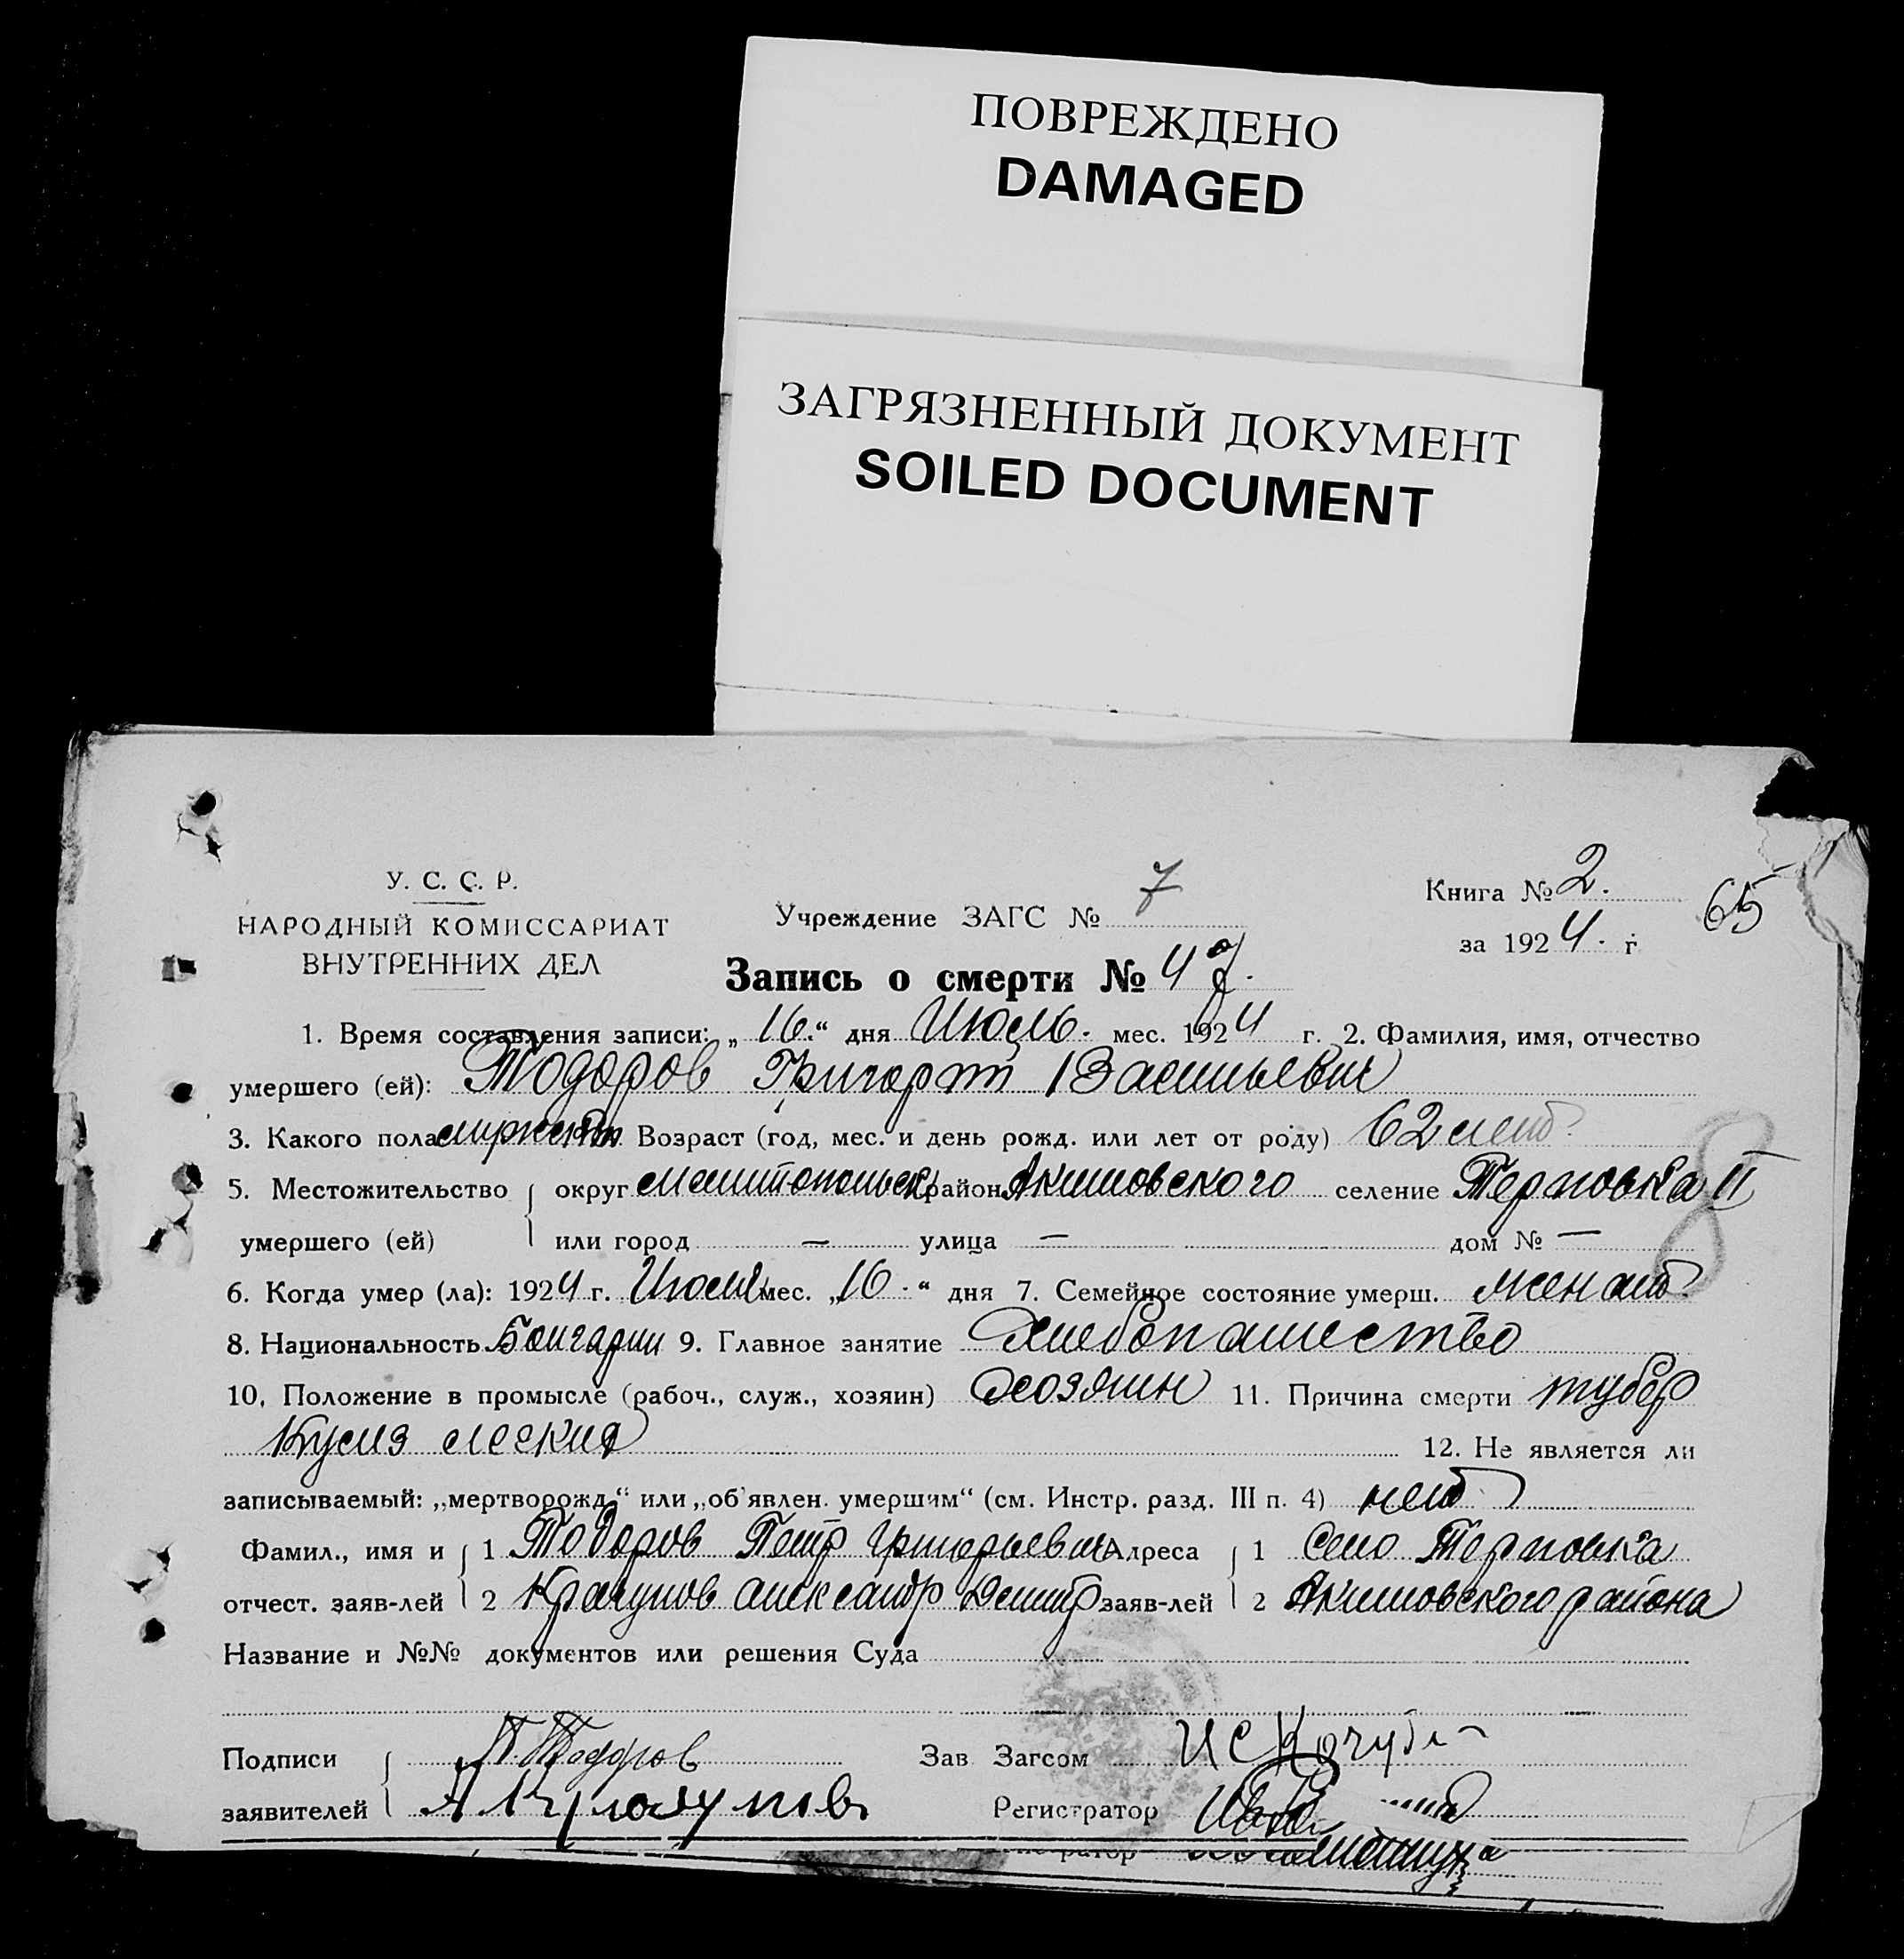 ПОВРЕЖДЕНО
DAMAGED
ЗАГРЯЗНЕННЫЙ ДОКУМЕНТ
SOILED DOCUMENT
У. С. С. Р.
НАРОДНЫЙ КОМИССАРИАТ
ВНУТРЕННИХ ДЕЛ
Учреждение ЗАГС № 7
Книга № 2.
за 1924. г.
65
Запись о смерти № 47.
1. Время составления записи: „16.“ дня Июль. мес. 1924 г. 2. Фамилия, имя, отчество
умершего (ей): Тодоров Григорій Васильевич
3. Какого пола мужского Возраст (год, мес. и день рожд. или лет от роду) 62 лет.
8
5. Местожительство округ Мелитопольск район Акимовского селение Терновка II
умершего (ей) или город — улица — дом № —
6. Когда умер (ла): 1924 г. Июля мес. „16.“ дня 7. Семейное состояние умерш. женат.
8. Национальность Болгарин 9. Главное занятие Хлебопашество
10. Положение в промысле (рабоч., служ., хозяин) Хозяин 11. Причина смерти тубер
кулиз легких 12. Не является ли
записываемый: „мертворожд.“ или „об'явлен. умершим“ (см. Инстр. разд. III п. 4) нет
Фамил., имя и 1 Тодоров Петр Григорьевич Адреса 1 Село Терновка
отчест. заяв-лей 2 Крагунов Александр Демитр заяв-лей 2 Акимовского района
Название и №№ документов или решения Суда
Подписи П. Тодоров Зав Загсом И С Кочуби
заявителей А Крагунов Регистратор